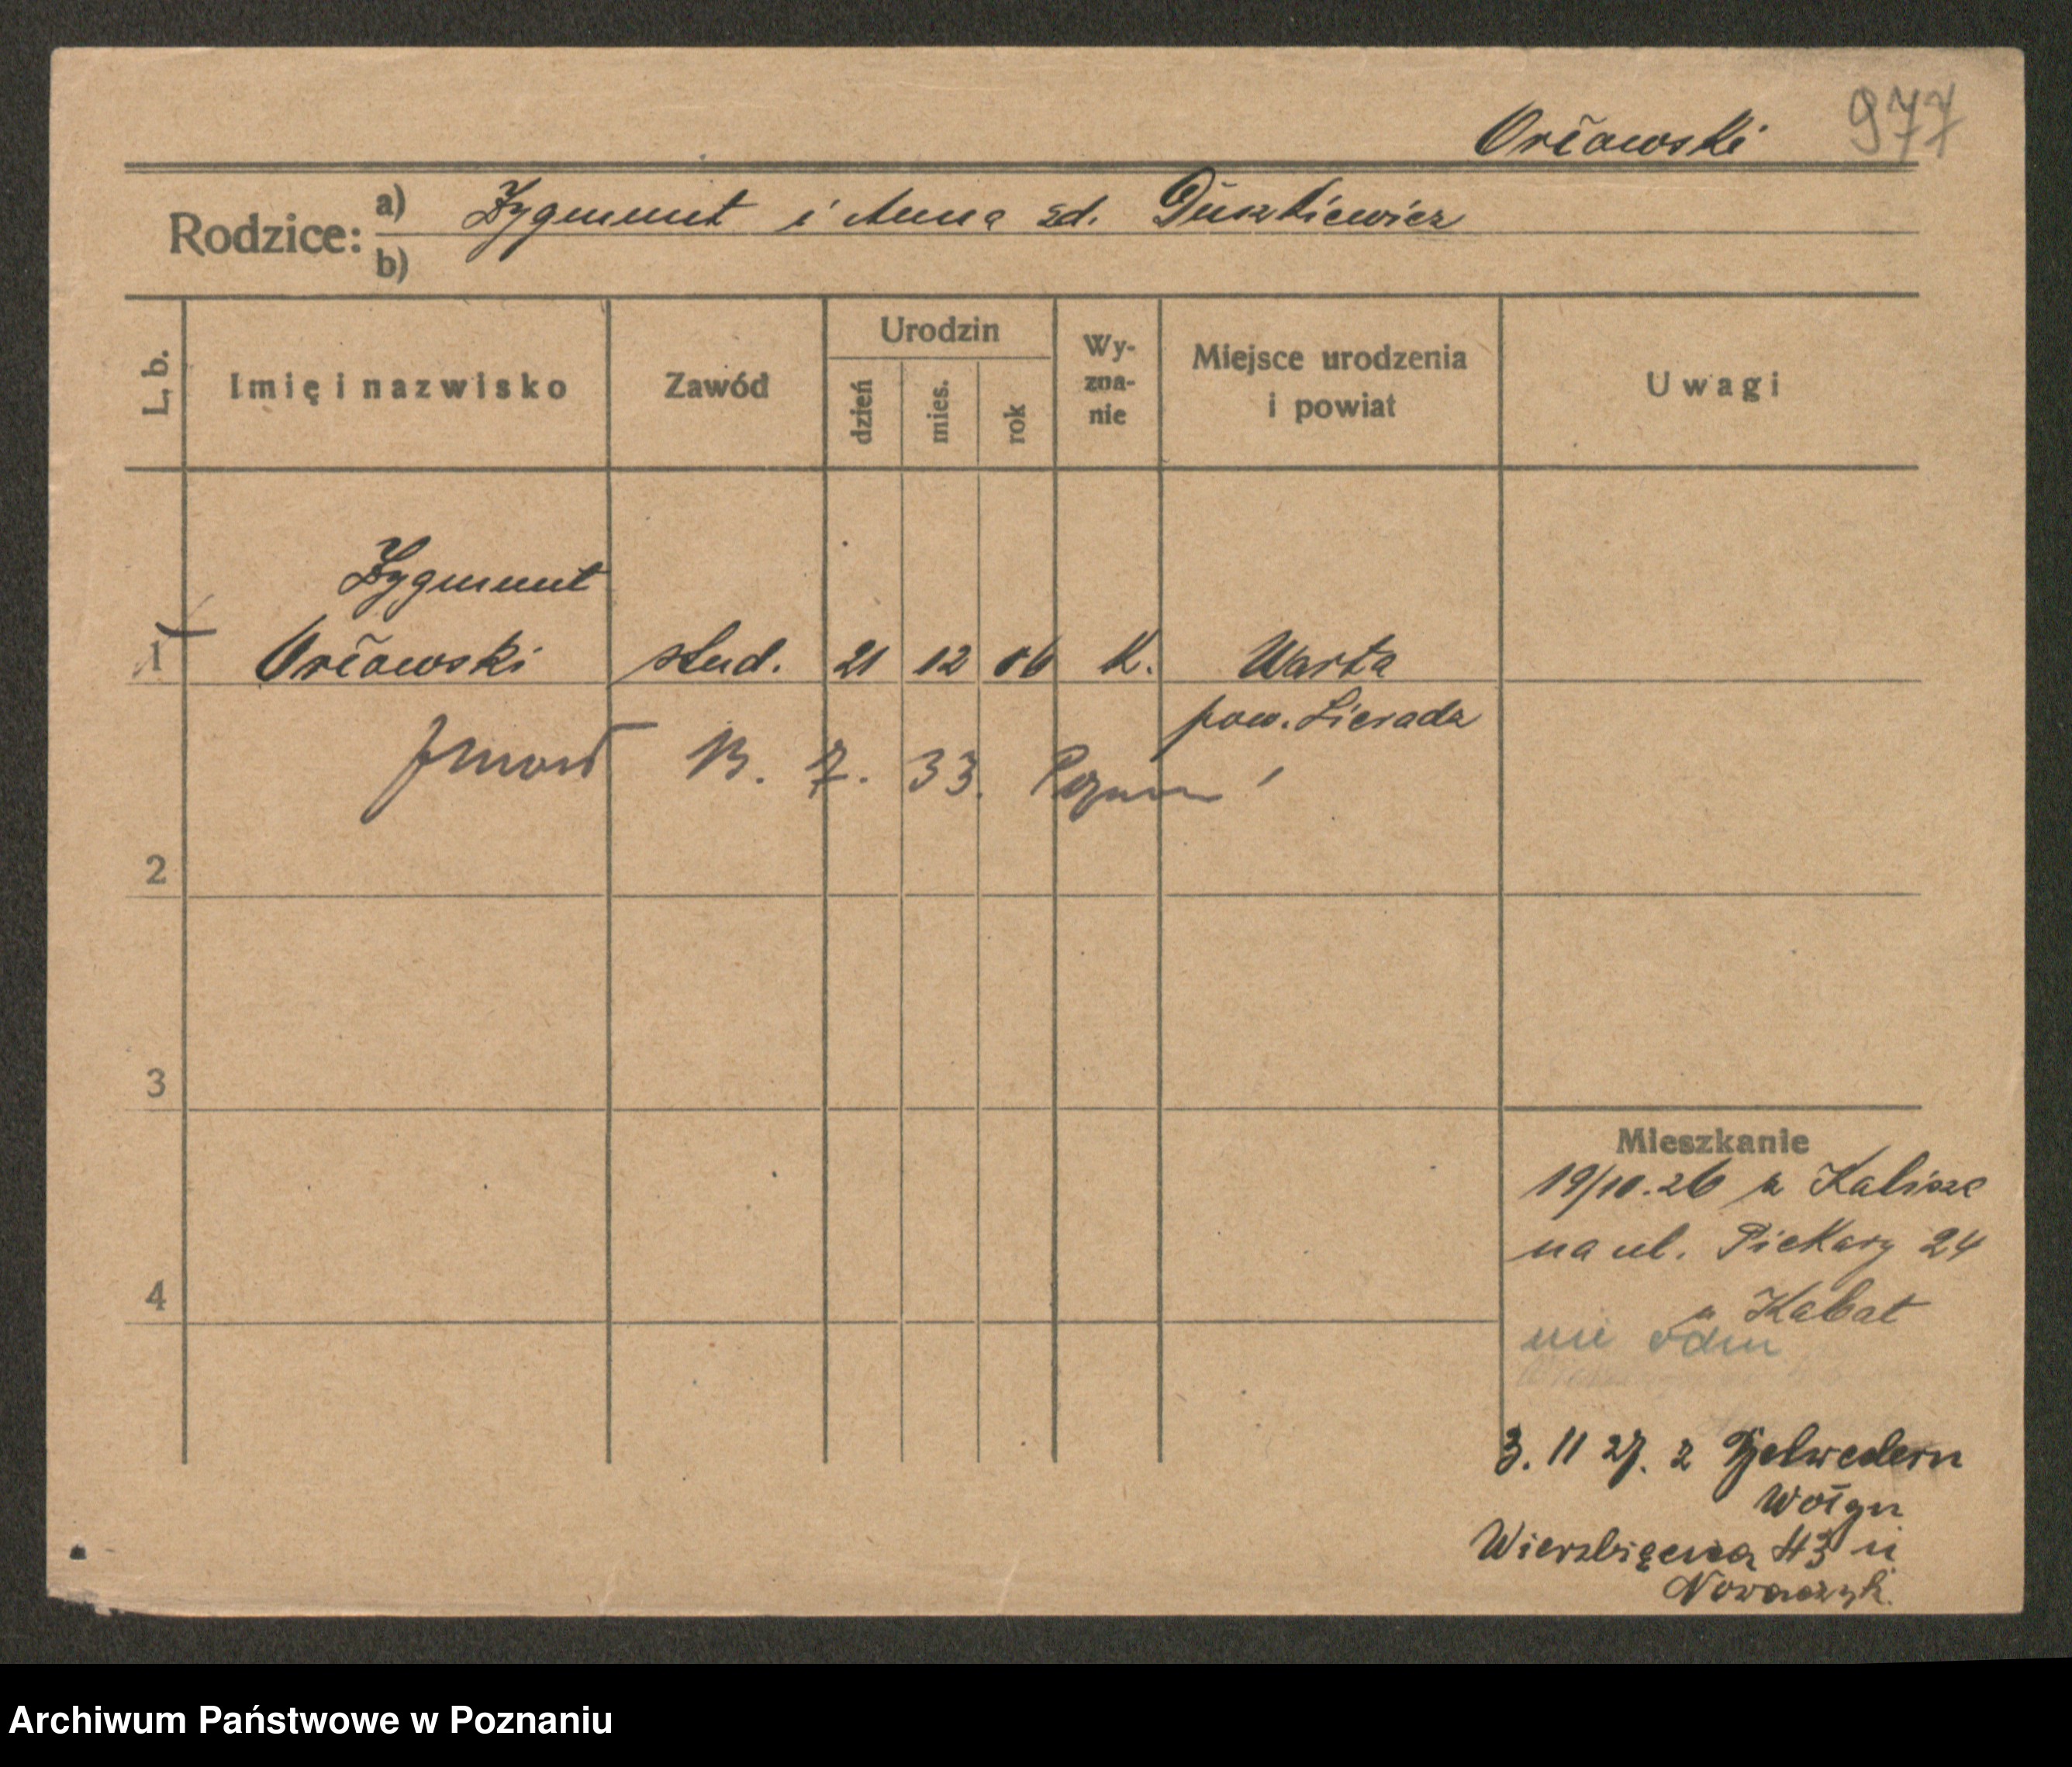 Orłowski 977
Rodzice: a) Zygmunt i Anna zd. Duszkiewicz
b)
L. b. Imię i nazwisko Zawód Urodzin dzień mies. rok Wyzna-nie Miejsce urodzenia i powiat Uwagi
Zygmunt
1 Orłowski stud. 21 12 06 K. Warta
pow. Sieradz
zmarł 13. 7. 33. Poznań
2
3
Mieszkanie
19/10.26 z Kalisze
na ul. Piekary 24
4
u Kabat
nie odm
3. 11 27. z Belwederu
Wołyn
Wierzbięcice 43 u
Nowaczyk.
Archiwum Państwowe w Poznaniu